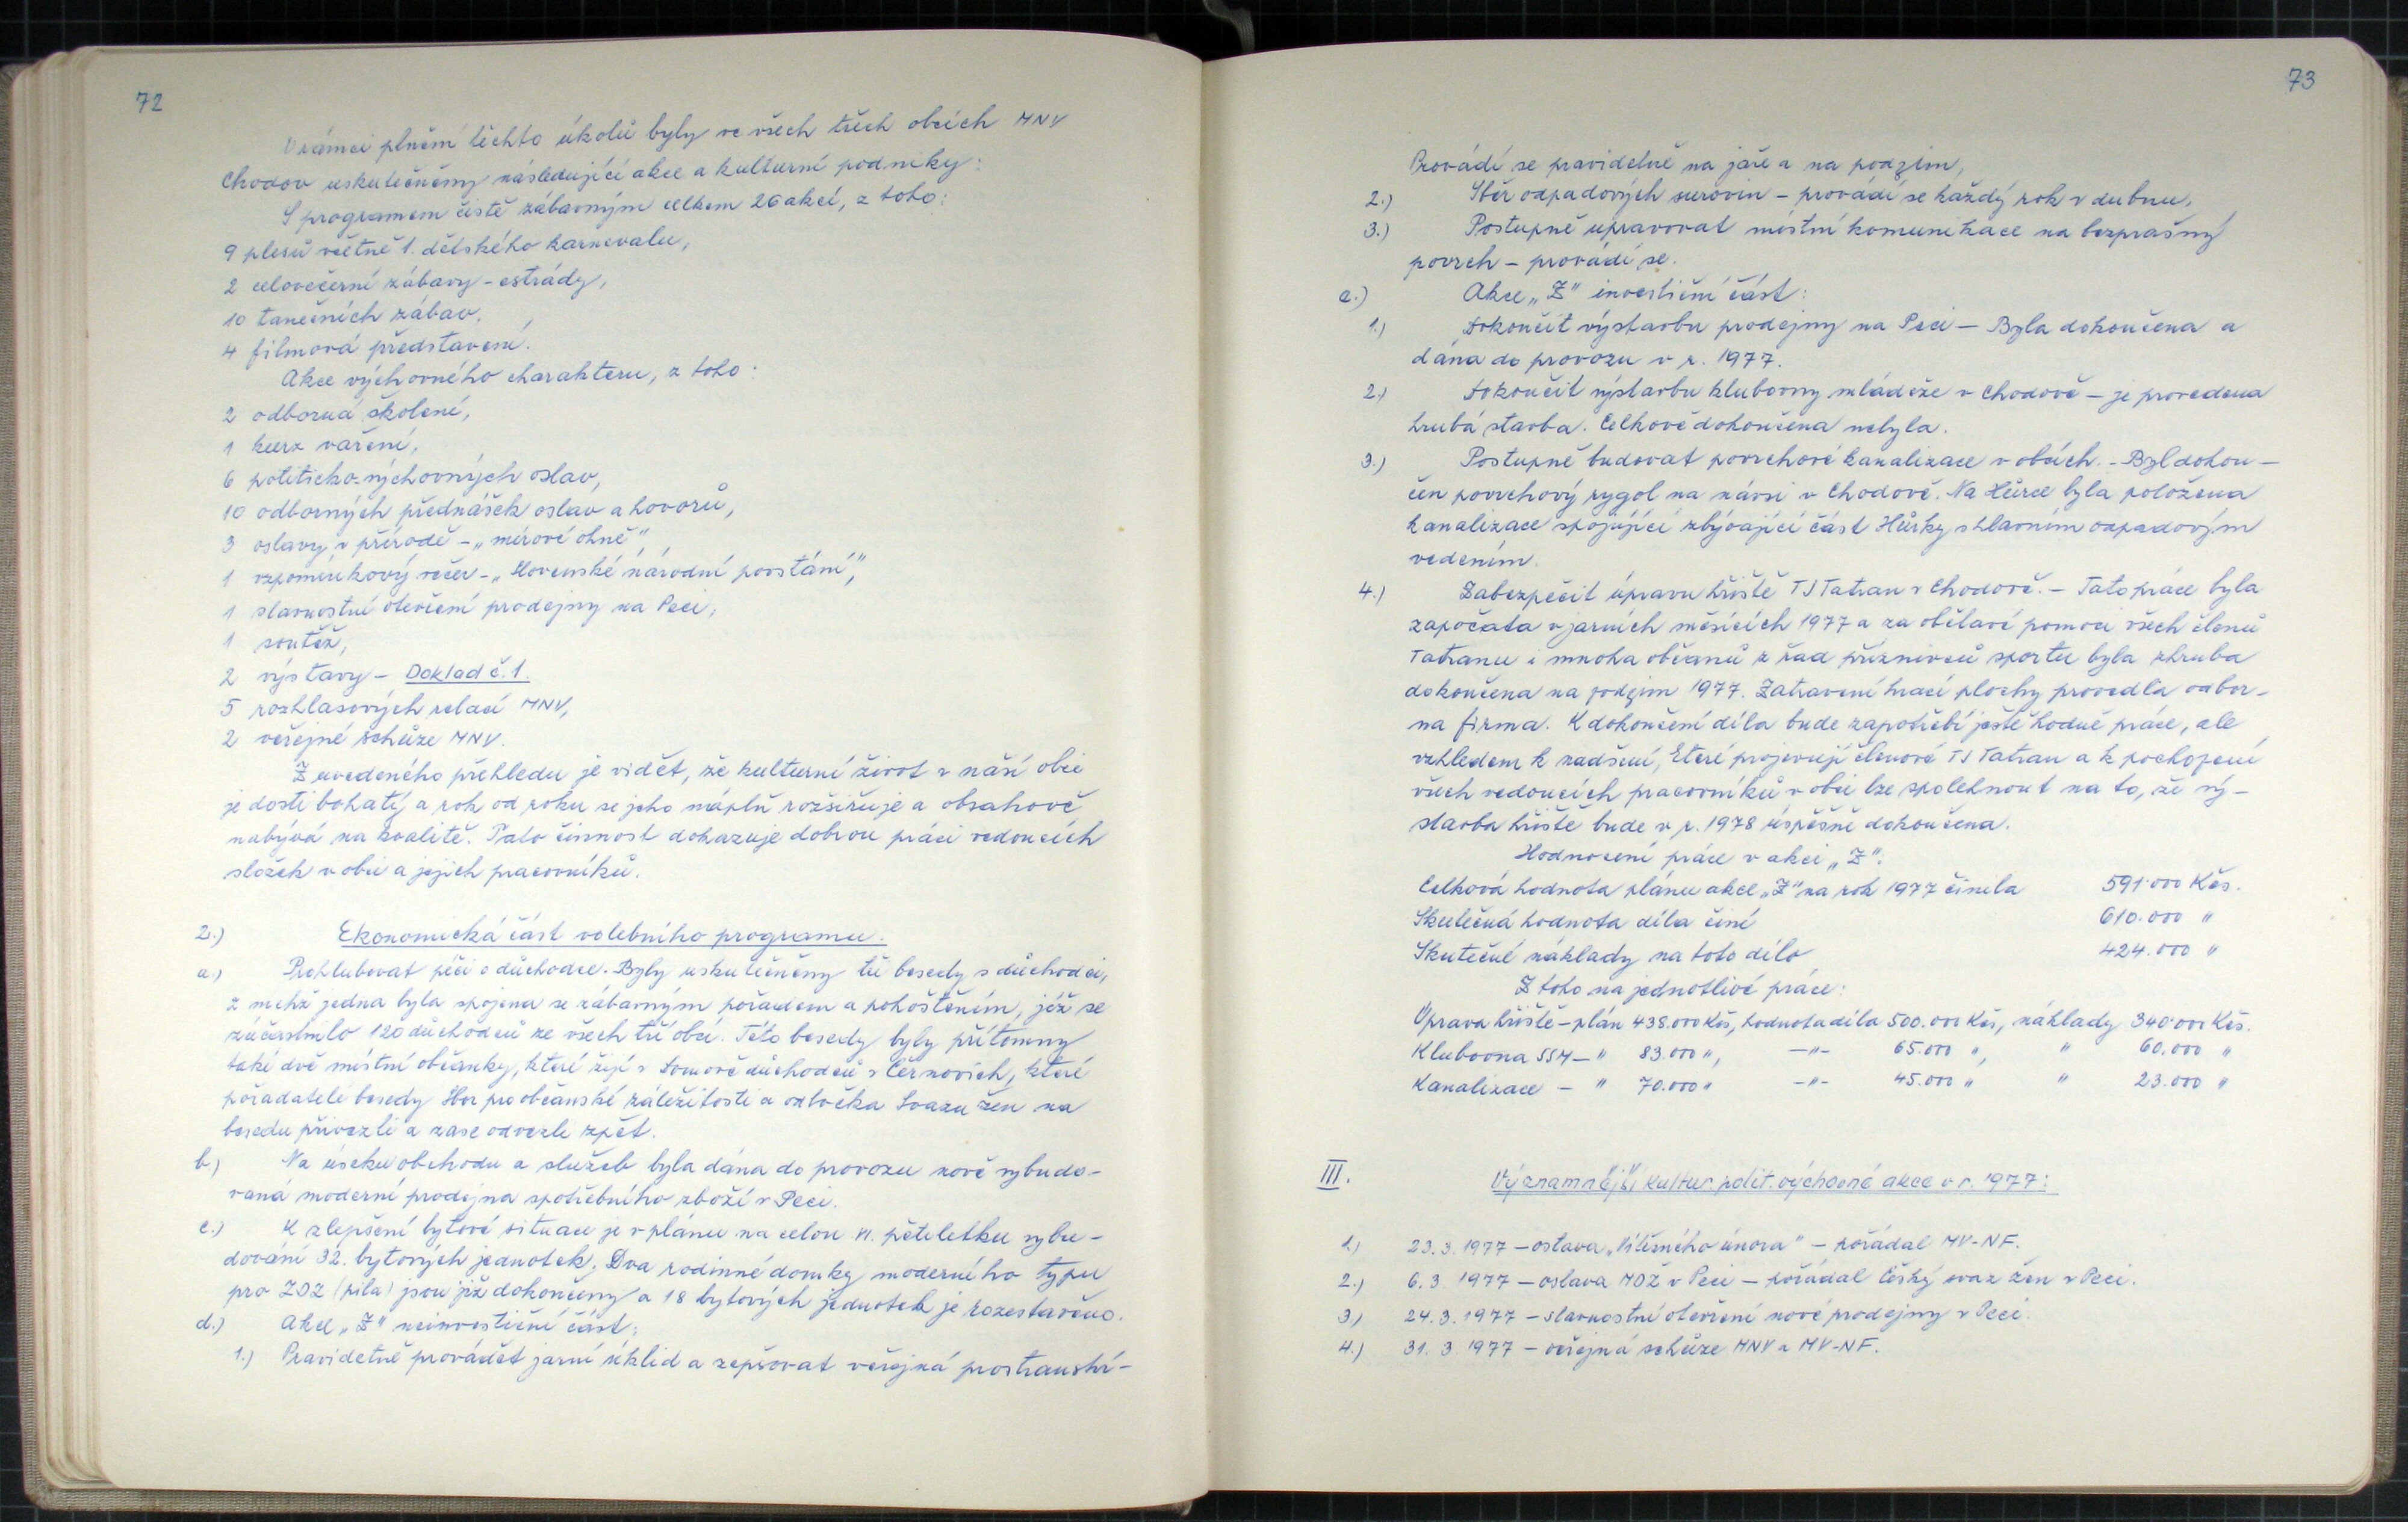 72
V rámci plnění těchto úkolů byly ve všech třech obcích MNV
Chodov uskutečněny následující akce a kulturní podniky:
S programem čistě zábavným celkem 26 akcí, z toho:
9 plesů včetně 1. dětského karnevalu,
2 celovečerní zábavy - estrády,
10 tanečních zábav.
4 filmová představení.
Akce výchovného charakteru, z toho:
2 odborná školení,
1 kurz vaření,
6 politicko-výchovných oslav,
10 odborných přednášek oslav a hovorů,
3 oslavy v přírodě - „mírové ohně"
1 vzpomínkový večer - „Slovenské národní povstání",
1 slavnostní otevření prodejny na Peci,
1 soutěž,
2 výstavy - Doklad č.1.
5 rozhlasových relací MNV,
2 veřejné schůze MNV.
Z uvedeného přehledu je vidět, že kulturní život v naší obci
je dosti bohatý a rok od roku se jeho náplň rozšiřuje a obsahově
nabývá na kvalitě. Tato činnost dokazuje dobrou práci vedoucích
složek v obci a jejich pracovníků.
2.) Ekonomická část volebního programu.
a.) Prohlubovat péči o důchodce. Byly uskutečněny tři besedy s důchodci,
z nichž jedna byla spojena se zábavným pořadem a pohoštěním, jež se
zúčastnilo 120 důchodců ze všech tří obcí. Této besedy byly přítomny
také dvě místní občanky, které žijí v Domově důchodců v Černovicích, které
pořadatelé besedy Sbor pro občanské záležitosti a odbočka Svazu žen na
besedu přivezli a zase odvezli zpět.
b.) Na úseku obchodu a služeb byla dána do provozu nově vybudo-
vaná moderní prodejna spotřebního zboží v Peci.
c.) K zlepšení bytové situace je v plánu na celou VI. pětiletku vybu-
dování 32. bytových jednotek. Dva rodinné domky moderního typu
pro ZDZ (pila) jsou již dokončeny a 18 bytových jednotek je rozestavěno.
d.) Akce „Z" neinvestiční část:
1.) Pravidelně provádět jarní úklid a zepšovat veřejná prostranství-
73
Provádí se pravidelně na jaře a na podzim,
2.) Sběr odpadových surovin - provádí se každý rok v dubnu,
3.) Postupně upravovat místní komunikace na bezprašný
povrch - provádí se.
e.) Akce „Z" investiční část:
1.) Dokončit výstavbu prodejny na Peci - Byla dokončena a
dána do provozu v r. 1977.
2.) Dokončit výstavbu klubovny mládeže v Chodově - je provedena
hrubá stavba. Celkově dokončena nebyla.
3.) Postupně budovat povrchové kanalizace v obcích. - Byl dokon-
čen povrchový rygol na návsi v Chodově. Na Hůrce byla položena
kanalizace spojující zbývající část Hůrky s hlavním odpadovým
vedením.
4.) Zabezpečit úpravu hřiště TJ Tatran v Chodově. - Tato práce byla
započata v jarních měsících 1977 a za obětavé pomoci všech členů
Tatranu i mnoha občanů z řad příznivců sportu byla zhruba
dokončena na podzim 1977. Zatravení hrací plochy provedla odbor-
na firma. K dokončení díla bude zapotřebí ještě hodně práce, ale
vzhledem k nadšení, které projevují členové TJ Tatran a k pochopení
všech vedoucích pracovníků v obci lze spolehnout na to, že vý-
stavba hřiště bude v r. 1978 úspěšně dokončena.
Hodnocení práce v akci „Z".
Celková hodnota plánu akce „Z" na rok 1977 činila 591.000 Kčs.
Skutečná hodnota díla činí 610.000 "
Skutečné náklady na toto dílo 424.000 "
Z toho na jednotlivé práce:
Úprava hřiště - plán 438.000 Kčs, hodnota díla 500.000 Kčs, náklady 340.000 Kčs.
Klubovna SSM - " 83.000 ", -"- 65.000 ", " 60.000 "
Kanalizace - " 70.000 " -"- 45.000 " " 23.000 "
III. Významnější kultur. polit. výchovné akce v r. 1977:
1.) 23. 3. 1977 - oslava „Vítězného února" - pořádal MV-NF.
2.) 6. 3. 1977 - oslava MDŽ v Peci - pořádal Český svaz žen v Peci.
3.) 24. 3. 1977 - slavnostní otevření nové prodejny v Peci.
4.) 31. 3. 1977 - veřejná schůze MNV a MV-NF.